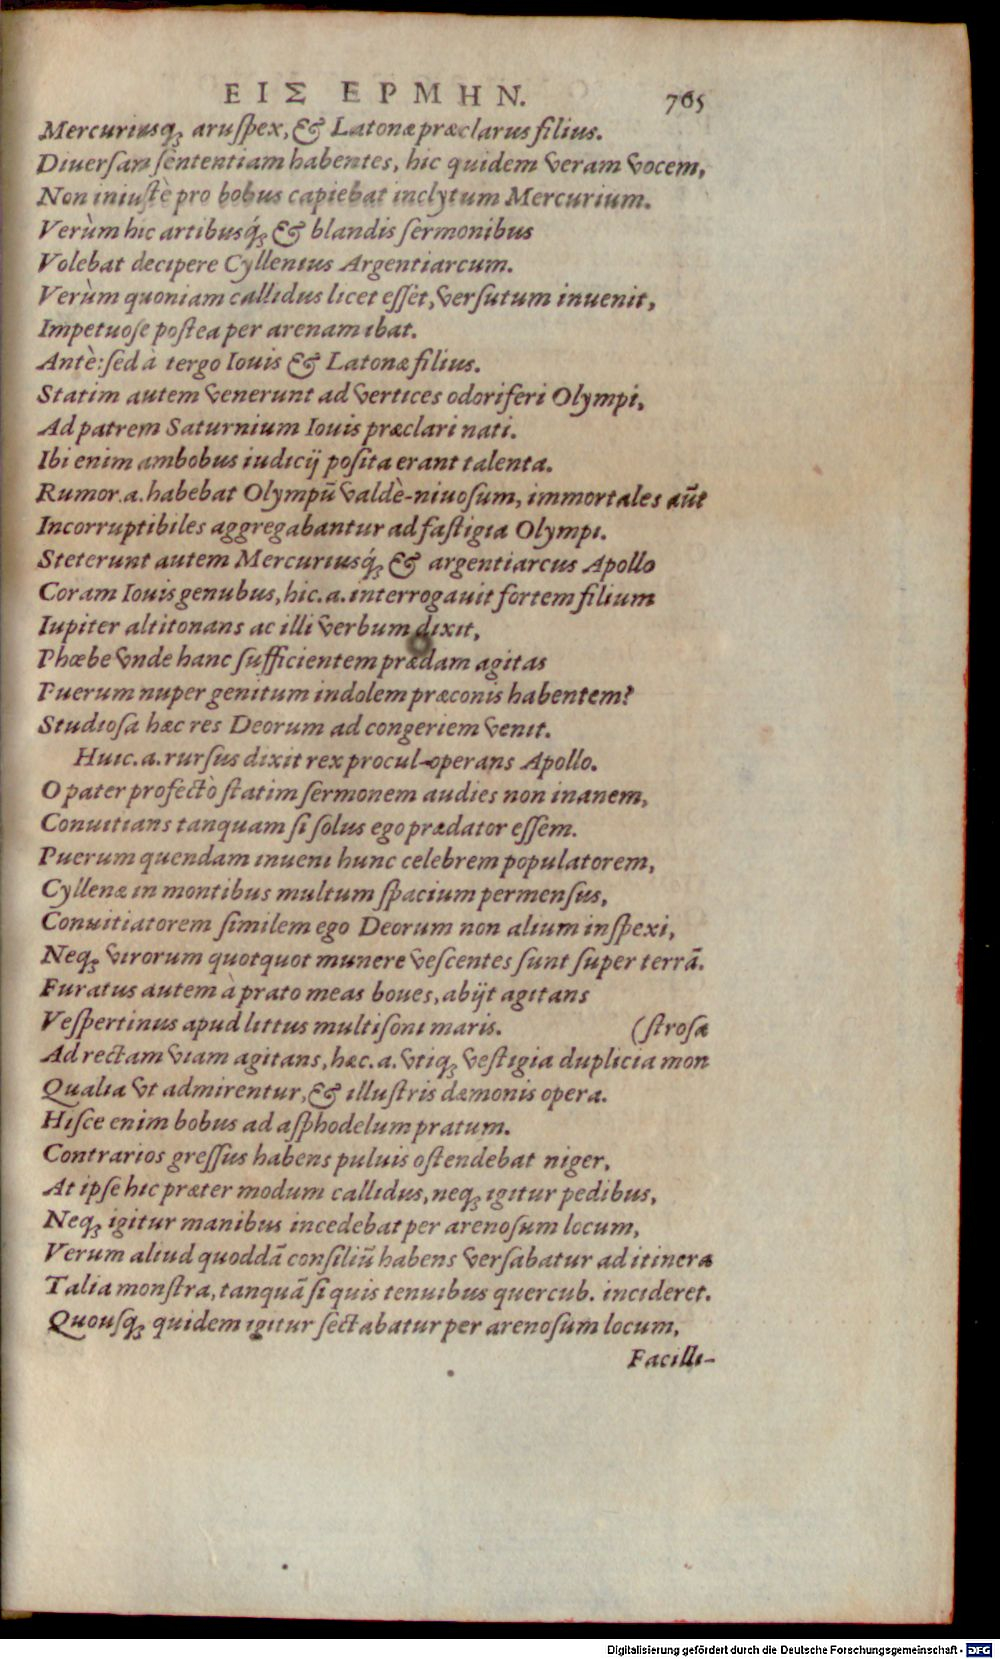 ΕΙΣ ΕΡΜΗΝ. 765
Mercuriusq́; aruſpex, & Latonæ præclarus filius.
Diuerſam ſententiam habentes, hic quidem veram vocem,
Non iniuſtè pro bobus capiebat inclytum Mercurium.
Verùm hic artibusq́; & blandis ſermonibus
Volebat decipere Cyllenius Argentiarcum.
Verùm quoniam callidus licet eſſet, verſutum inuenit,
Impetuoſe poſtea per arenam ibat.
Antè: ſed à tergo Iouis & Latonæ filius.
Statim autem venerunt ad vertices odoriferi Olympi,
Ad patrem Saturnium Iouis præclari nati.
Ibi enim ambobus iudicij poſita erant talenta.
Rumor .a. habebat Olympũ valdè-niuoſum, immortales aũt
Incorruptibiles aggregabantur ad faſtigia Olympi.
Steterunt autem Mercuriusq́; & argentiarcus Apollo
Coram Iouis genubus, hic .a. interrogauit fortem filium
Iupiter altitonans ac illi verbum dixit,
Phœbe vnde hanc ſufficientem prædam agitas
Puerum nuper genitum indolem præconis habentem?
Studioſa hæc res Deorum ad congeriem venit.
Huic .a. rurſus dixit rex procul-operans Apollo.
O pater profectò ſtatim ſermonem audies non inanem,
Conuitians tanquam ſi ſolus ego prædator eſſem.
Puerum quendam inueni hunc celebrem populatorem,
Cyllenæ in montibus multum ſpacium permenſus,
Conuitiatorem ſimilem ego Deorum non alium inſpexi,
Neq; virorum quotquot munere veſcentes ſunt ſuper terrã.
Furatus autem à prato meas boues, abijt agitans
Veſpertinus apud littus multiſoni maris. (ſtroſa
Ad rectam viam agitans, hæc .a. vtiq; veſtigia duplicia mon
Qualia vt admirentur, & illuſtris dæmonis opera.
Hiſce enim bobus ad aſphodelum pratum.
Contrarios greſſus habens puluis oſtendebat niger,
At ipſe hic præter modum callidus, neq; igitur pedibus,
Neq; igitur manibus incedebat per arenoſum locum,
Verum aliud quoddã conſiliũ habens verſabatur ad itinera
Talia monſtra, tanquã ſi quis tenuibus quercub. incideret.
Quouſq; quidem igitur ſectabatur per arenoſum locum,
Facilli-
Digitalisierung gefördert durch die Deutsche Forschungsgemeinschaft - DFG